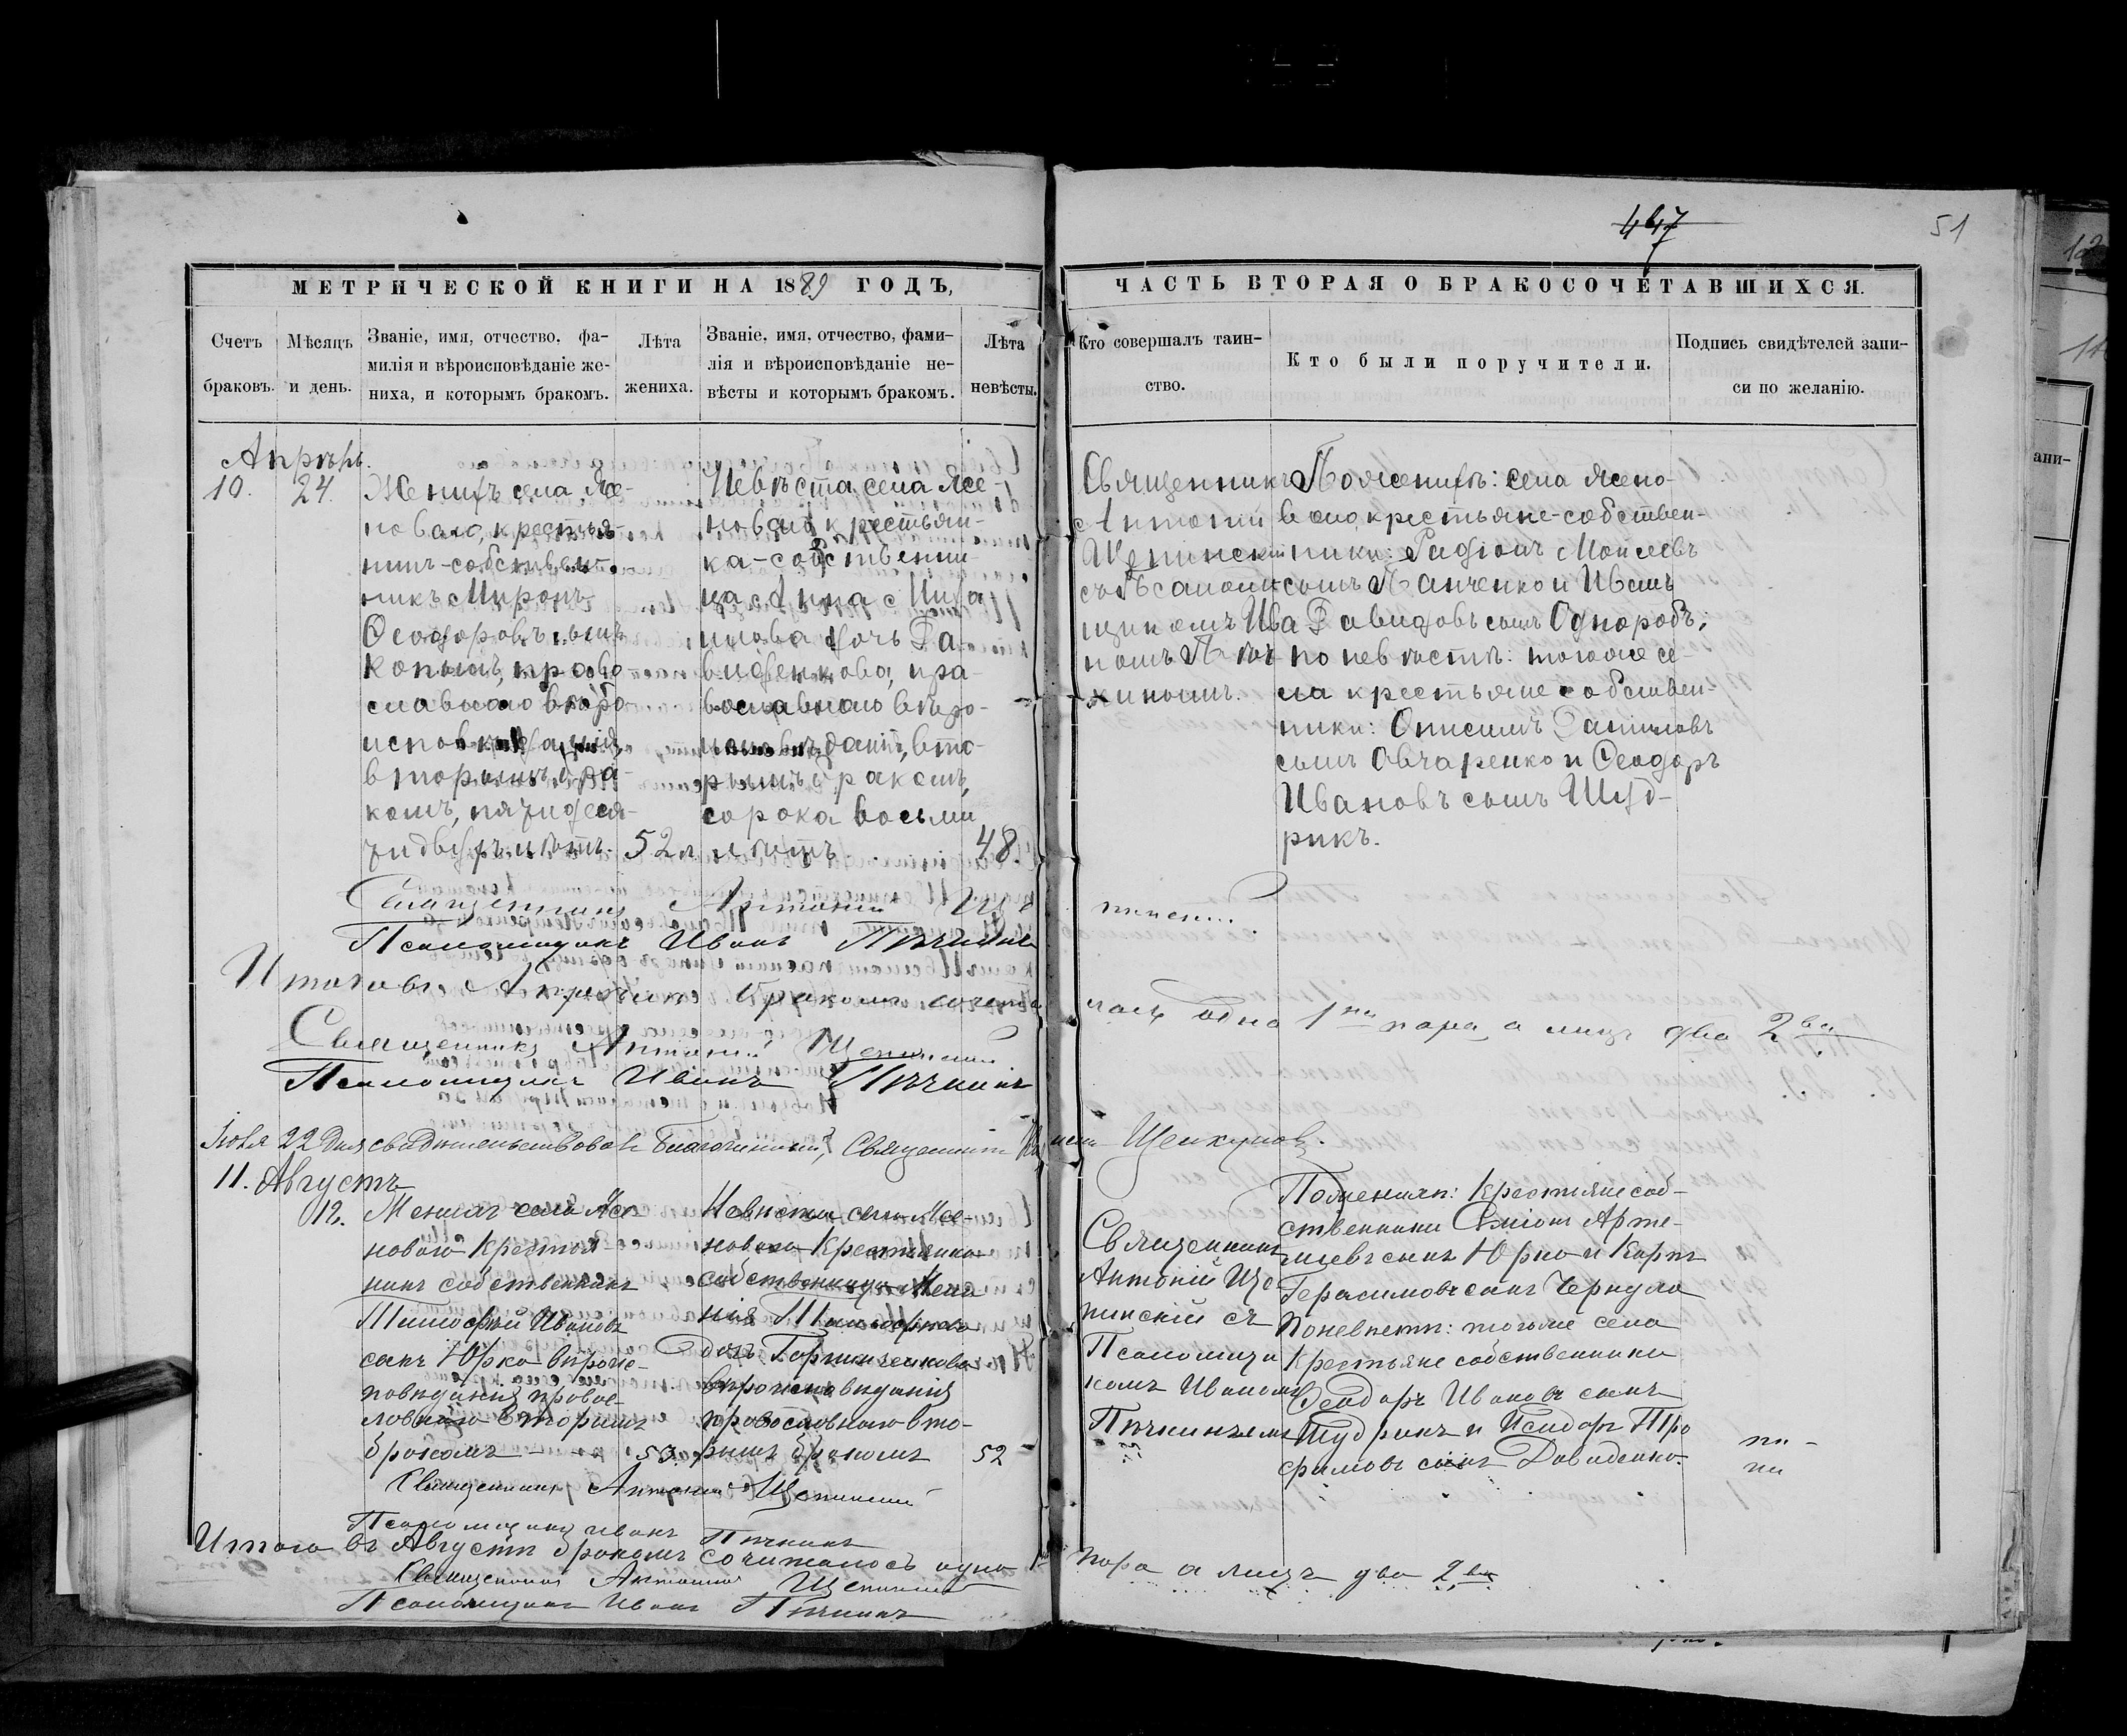 447
51
МЕТРИЧЕСКОЙ КНИГИ НА 1889 ГОДЪ,
ЧАСТЬ ВТОРАЯ О БРАКОСОЧЕТАВШИХСЯ.
Счетъ браковъ.
Мѣсяцъ и день.
Званіе, имя, отчество, фа-
милія и вѣроисповѣданіе же-
ниха, и которымъ бракомъ.
Лѣта жениха.
Званіе, имя, отчество, фами-
лія и вѣроисповѣданіе не-
вѣсты и которымъ бракомъ.
Лѣта невѣсты.
Кто совершалъ таин-
ство.
Кто были поручители.
Подпись свидѣтелей запи-
си по желанію.
Апрѣль.
10. 24.
Женихъ села Ясе-
новаго, крестья-
нинъ-собствен-
никъ Миронъ
Ѳеодоровъ сынъ
Копымъ, право
славнаго вѣро
исповѣданія,
вторымъ бра-
комъ, пятидеся-
тидвухъ лѣтъ.
52 л
Невѣста села Ясе-
новаго крестьян-
ка-собственни-
ца Анна
дочь Да-
виденкова, пра-
вославнаго вѣро-
исповѣданія, вто-
рымъ бракомъ,
сорока восьми
лѣтъ
48.
Священникъ
Антоній
Щепинскій
съ Псаломщ
щикомъ Ива
номъ Пѣч
кинымъ.
По женихѣ: села Ясено-
ваго, крестьяне-собствен-
ники: Радіонъ Моисеевъ
сынъ Панченко и Иванъ
Давидовъ сынъ Однаробъ;
по невѣстѣ: того же се-
ла крестьяне собствен-
ники: Онисимъ Даниловъ
сынъ Овчаренко и Ѳеодоръ
Ивановъ сынъ Шуд-
рикъ.
Священникъ Антоній Щепинскій
Псаломщикъ Иванъ Пѣчкинъ
Итого въ Апрѣлѣ бракомъ сочета
лась одна 1на пара а лицъ два 2ва
Священникъ Антоній Щепинскій
Псаломщикъ Иванъ Пѣчкинъ
22 дня свидѣтельствовалъ Благочинный, Священникъ
11. Августъ
12.
Женихъ села Ясе
новаго Крестья
нинъ собственникъ
Тимофѣй Ивановъ
сынъ Юрко вѣроис-
повѣданія правос-
лавнаго вторымъ
бракомъ
53.
Невѣста села Ясе-
новаго Крестьянка
собственница
Тимофѣева
дочь
вѣроисповѣданія
православнаго вто-
рымъ бракомъ
52
Священникъ
Антоній Ще-
пинскій съ
Псаломщи
комъ Иваномъ
Пѣчкинымъ
По женихѣ: Крестьяне соб-
ственники Арте-
миевъ сынъ Юрко и Карпъ
Герасимовъ сынъ Черкула
По невѣстѣ: того же села
Крестьяне собственники
Ѳеодоръ Ивановъ сынъ
Шудрикъ и Исидоръ Тро
фимовъ сынъ Давиденко.
Священникъ Антоній Щепинскій
Псаломщикъ Иванъ Пѣчкинъ
Итого въ Августѣ бракомъ сочиталось одна
пара а лицъ два 2ва
Священникъ Антоній Щепинскій
Псаломщикъ Иванъ Пѣчкинъ